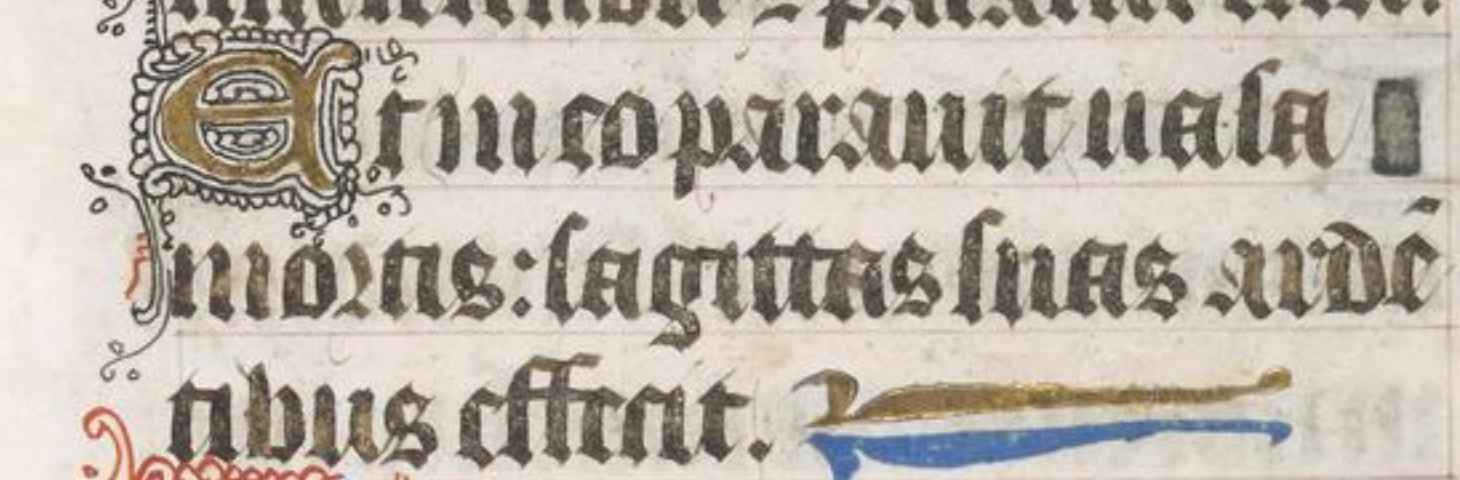 Et in eo parauit uasa
mortis: sagittas suas ardē
tibus effecit.